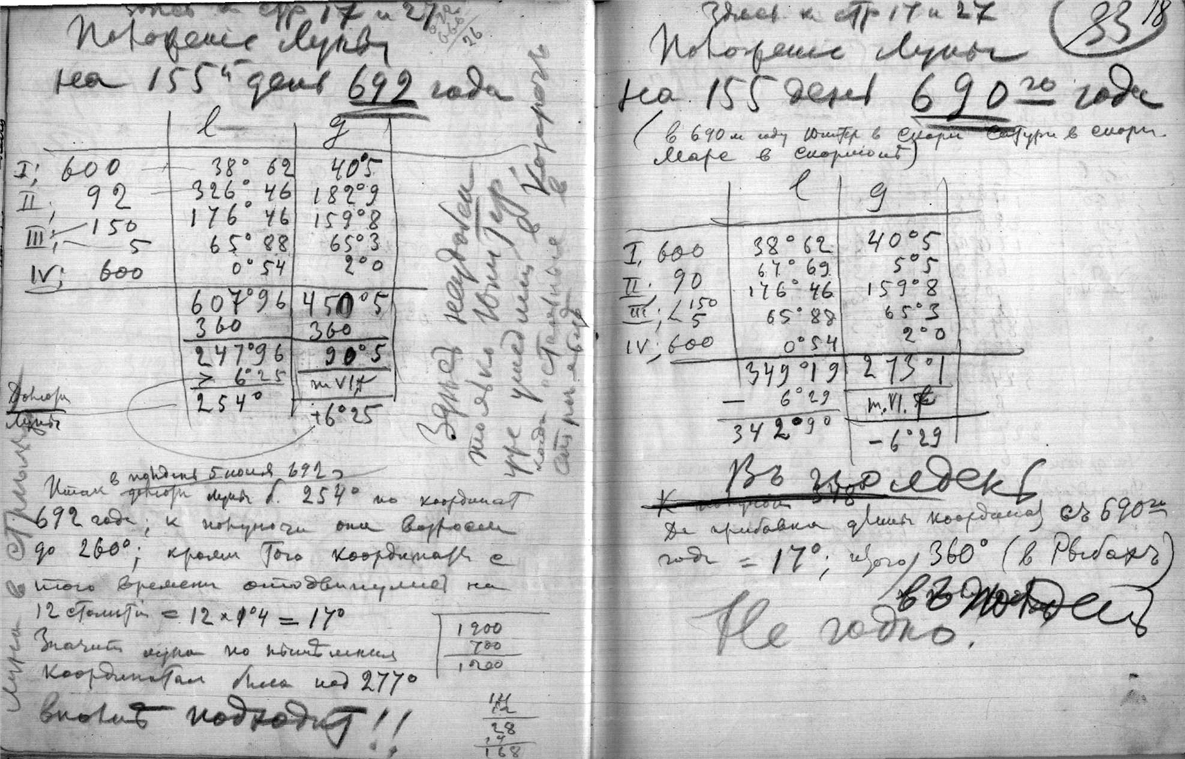 Здесь к стр 17 и 27
Положение Луны
на 155й день 692 года
l g
I; 600 38°62 40°5
II; 92 326°46 182°9
III; 150 176°46 159°8
5 65°88 65°3
IV; 600 0°54 2°0
607°96 450°5
360 360
247°96 90°5
> 6°25 m VI
254° +6°25
Долгота
Луны
Луна в стрельце
Здесь неудобен
только Юпитер,
уже ушедший в Козерог
когда остальные в
в полдень 5 июня 692
Итак долгота луны б. 254° по координат
692 года, к полуночи она возросла
до 260°; кроме того координаты с
того времени отодвинулись на
12 столетий = 12 × 1°4 = 17°
Значит луна по нынешним
координатам была над 277°
вполне подходит!!
1900
700
1200
28
14
168
Здесь к стр 17 и 27
33 18
Положение Луны
на 155 день 690го года
(в 690 м году Юпитер в Скорп Сатурн в скорп.
Марс в Скорпионе)
l g
I, 600 38°62 40°5
II; 90 67°69 5°5
III; < 150 176°46 159°8
5 65°88 65°3
IV, 600 0°54 2°0
349°19 273°1
– 6°29 m. VI.
342°90 – 6°29
Въ полдень
Да прибавка длины координат съ 690го
года = 17°; итого 360° (в Рыбахъ)
въ полдень
Не годно.